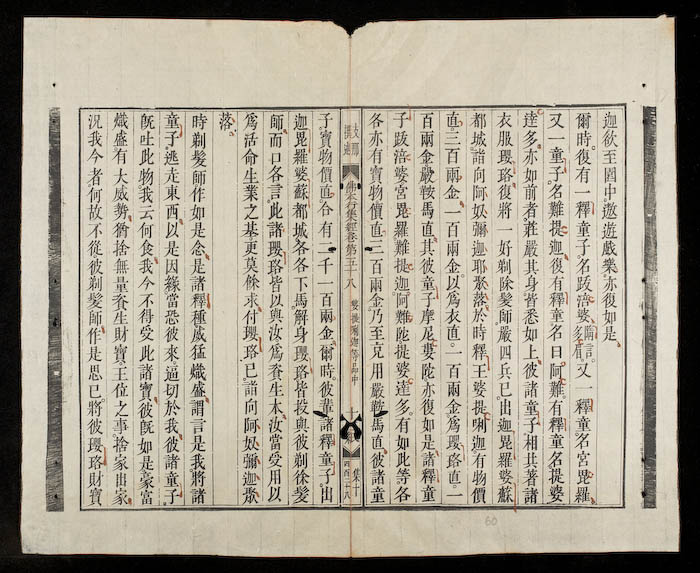 迦欲至園中遨遊戲樂亦復如是
爾時復有一釋童子名跋㴸婆隋言多有又一釋童名宮毘羅
又一童子名難提迦復有釋童名曰阿難有釋童名提婆
達多亦如前者莊嚴其身皆悉如上彼諸童子相共著諸
衣服瓔珞復將一好剃除髮師嚴四兵已出迦毘羅婆蘇
都城詣向阿奴彌迦耶聚落於時釋王婆提唎迦有物價
直三百兩金一百兩金以爲衣直一百兩金爲瓔珞直一
百兩金嚴鞍馬直其彼童子摩尼婁陀亦復如是諸釋童
子跋㴸婆宮毘羅難提迦阿難陀提婆達多有如此等各
各亦有寶物價直三百兩金乃至克用嚴鞍馬直彼諸童
支那撰述
佛本行集經卷第五十八 婆提唎迦等品中 十 集十
子寶物價直合有二千一百兩金爾時彼輩諸釋童子出
迦毘羅婆蘇都城各各下馬解身瓔珞皆投與彼剃鬚髮
師而口各言此諸瓔珞皆以與汝爲養生本汝當受用以
爲活命生業之基更莫餘求付瓔珞已詣向阿奴彌迦聚
落
時剃髮師作如是念是諸釋種威猛熾盛謂言是我將諸
童子逃走東西以是因緣當恐彼來逼切於我彼諸童子
旣吐此物我云何食我今不得受此諸寶彼旣如是豪富
熾盛有大威勢猶捨無量養生財寶王位之事捨家出家
況我今者何故不從彼剃髮師作是思已將彼瓔珞財寶
60